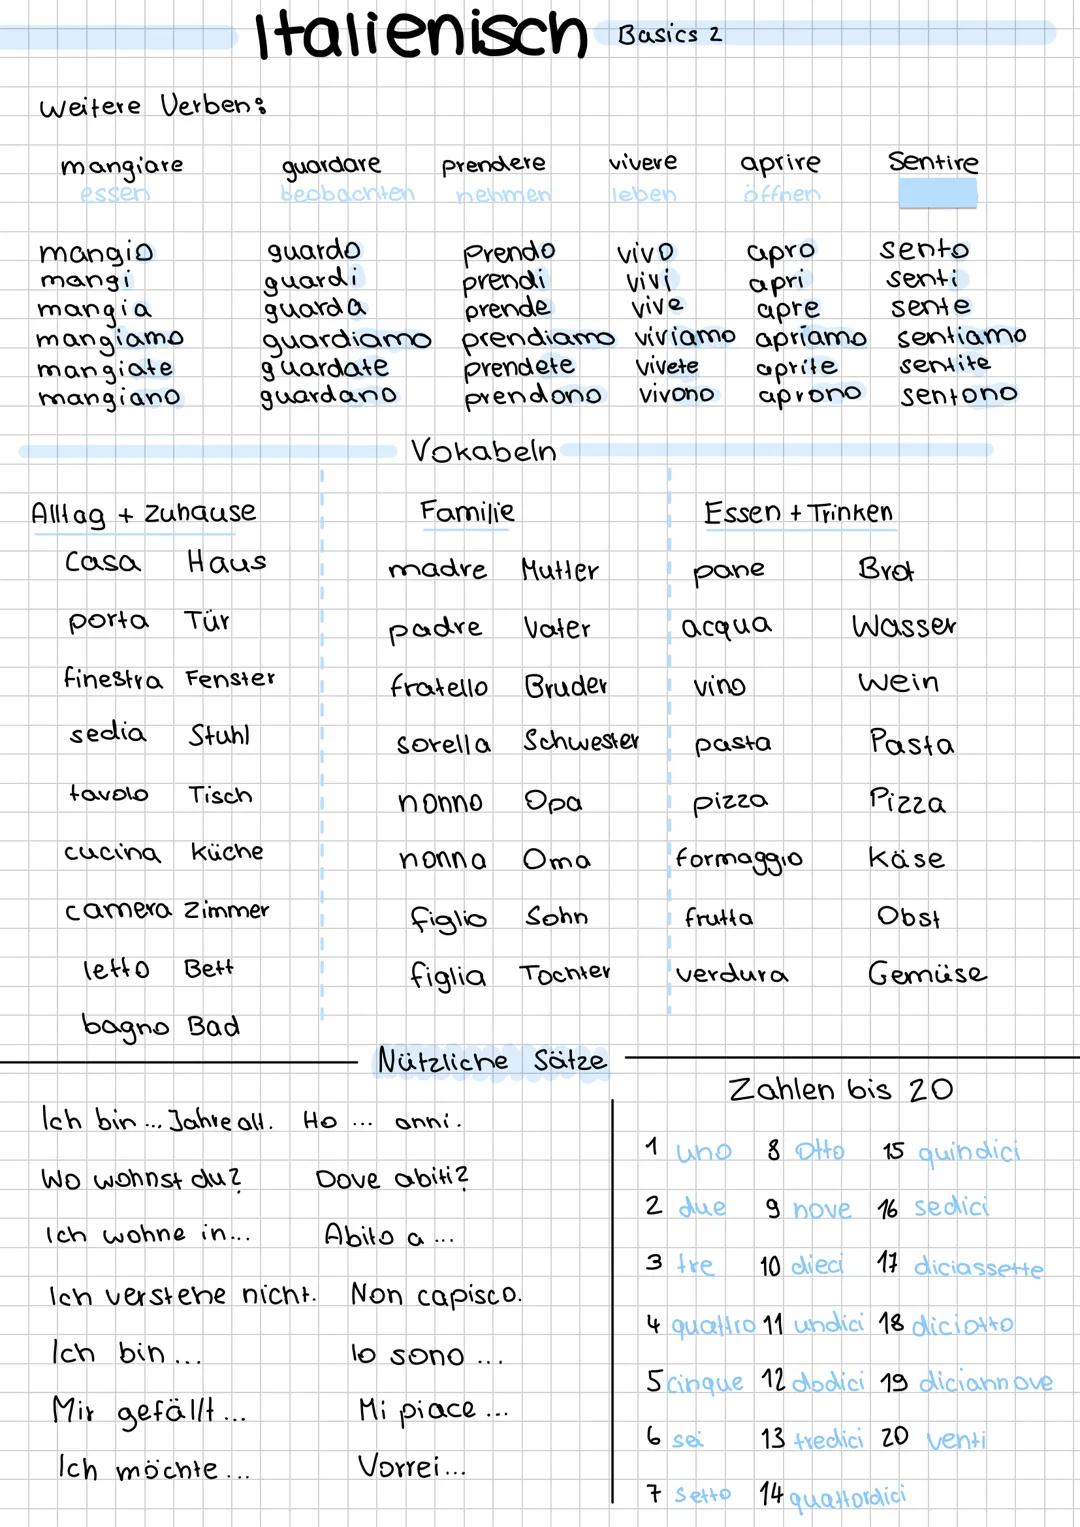 Italienisch Basics 2
Weitere Verben:
mangiare guardare prendere vivere aprire Sentire
essen beobachten nehmen leben öffnen
mangio guardo Prendo vivo apro sento
mangi guardi prendi vivi apri senti
mangia guarda prende vive apre sente
mangiamo guardiamo prendiamo viviamo apriamo sentiamo
mangiate guardate prendete vivete aprite sentite
mangiano guardano prendono vivono aprono sentono
Vokabeln
Alltag + zuhause
Casa Haus
porta Tür
finestra Fenster
sedia Stuhl
tavolo Tisch
cucina Küche
camera Zimmer
letto Bett
bagno Bad
Familie
madre Mutter
padre Vater
fratello Bruder
sorella Schwester
nonno Opa
nonna Oma
figlio Sohn
figlia Tochter
Essen + Trinken
pane Brot
acqua Wasser
vino Wein
pasta Pasta
pizza Pizza
formaggio Käse
frutta Obst
verdura Gemüse
Nützliche Sätze
Ich bin ... Jahre alt. Ho ... anni.
Wo wohnst du? Dove abiti?
Ich wohne in... Abito a ...
Ich verstehe nicht. Non capisco.
Ich bin ... Io sono ...
Mir gefällt ... Mi piace ...
Ich möchte ... Vorrei ...
Zahlen bis 20
1 uno 8 Otto 15 quindici
2 due 9 nove 16 sedici
3 tre 10 dieci 17 diciassette
4 quattro 11 undici 18 diciotto
5 cinque 12 dodici 19 diciannove
6 sei 13 tredici 20 venti
7 setto 14 quattordici